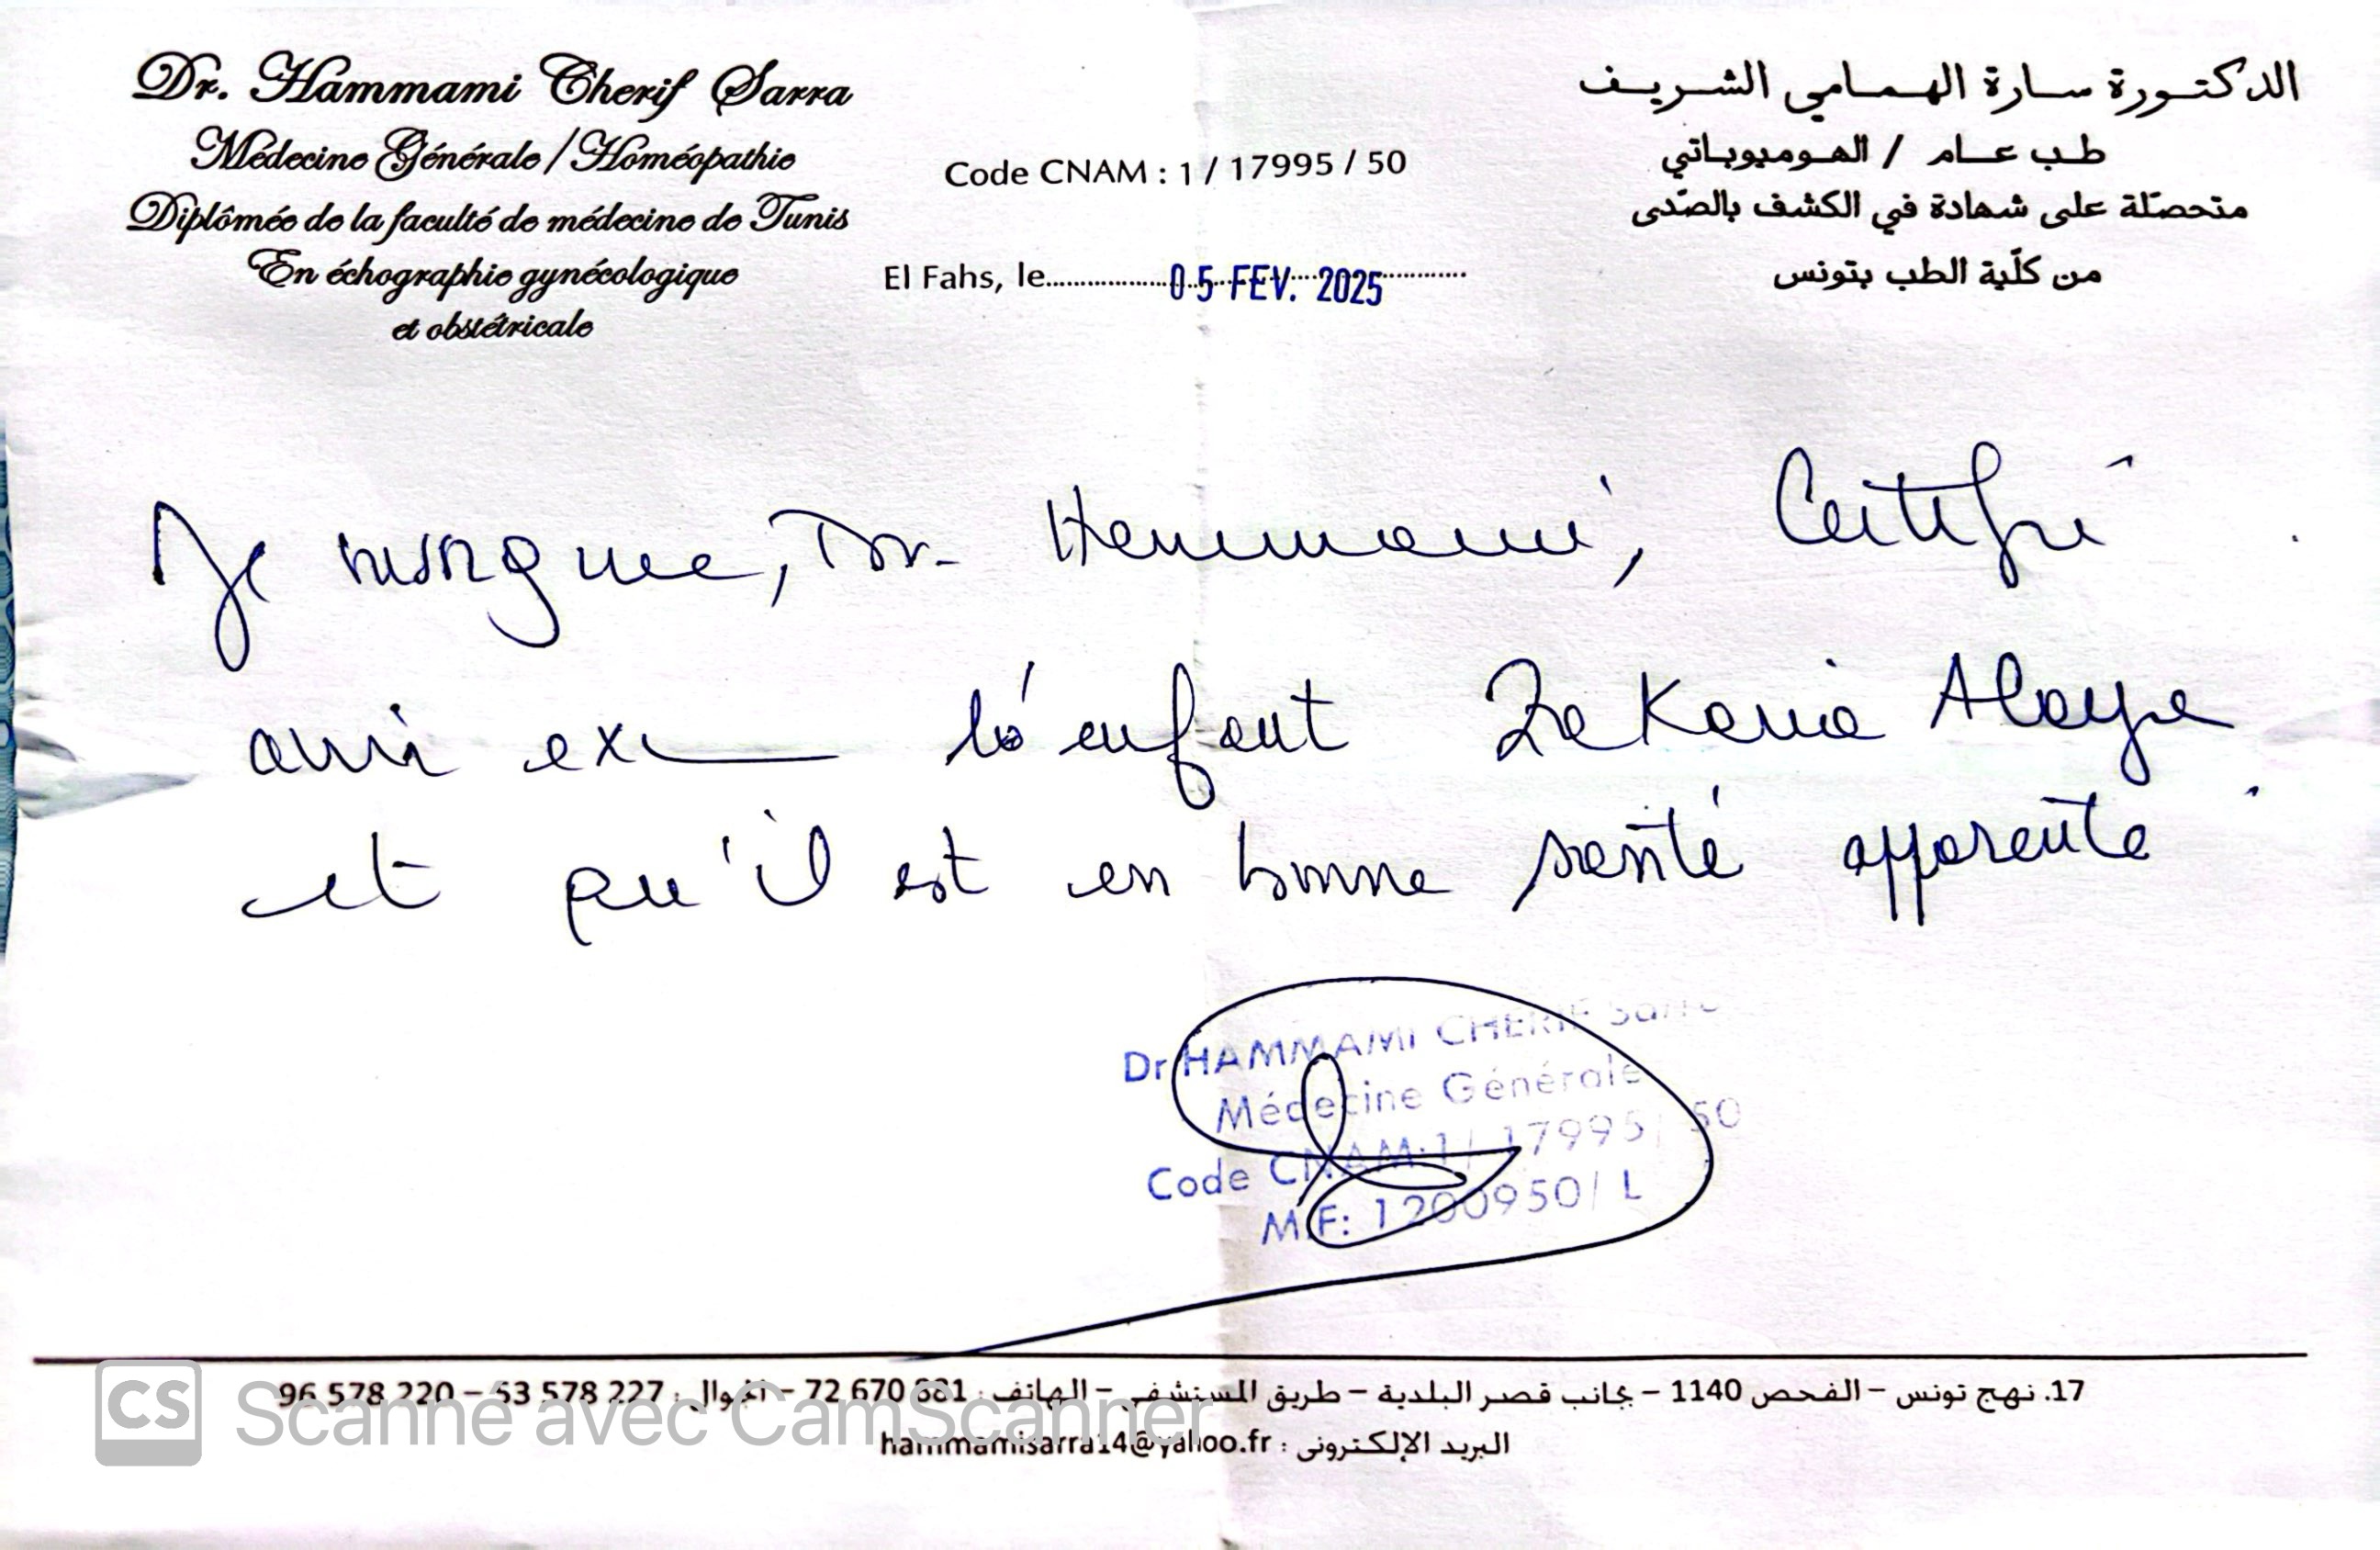 Dr. Hammami Cherif Sarra
Médecine Générale / Homéopathie
Diplômée de la faculté de médecine de Tunis
En échographie gynécologique
et obstétricale
Code CNAM : 1 / 17995 / 50
El Fahs, le 05 FEV. 2025
الدكتورة سارة الهمامي الشريف
طب عام / الهوميوباتي
متحصّلة على شهادة في الكشف بالصّدى
من كلّية الطب بتونس
Je , Dr. Hammami, Certifie
ex l'enfant Zakaria
et qu'il est en bonne santé apparente
Dr HAMMAMI CHERIF Sarra
Médecine Générale
Code CNAM:1/ 17995/ 50
M.F: 1200950/ L
17. نهج تونس – الفحص 1140 – بجانب قصر البلدية – طريق المستشفى – الهاتف : 72 670 881 – الجوال : 96 578 220 – 53 578 227
البريد الإلكتروني : hammamisarra14@yahoo.fr
CS Scanné avec CamScanner